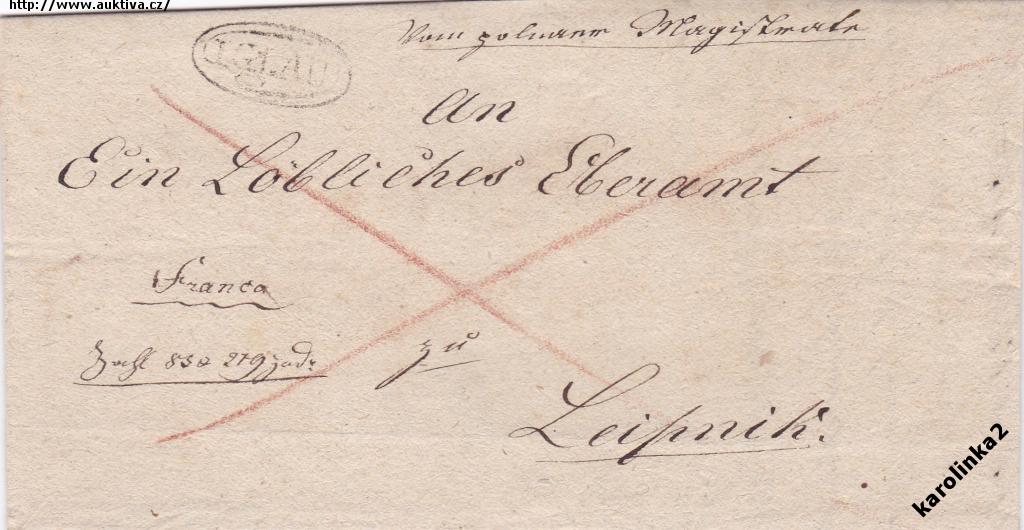 http://www.auktiva.cz/
IGLAU
Vom polnaer Magistrate
An
Ein Löbliches Oberamt
Franco
Zahl 838 219 jud:
zu
Leipnik.
karolinka2